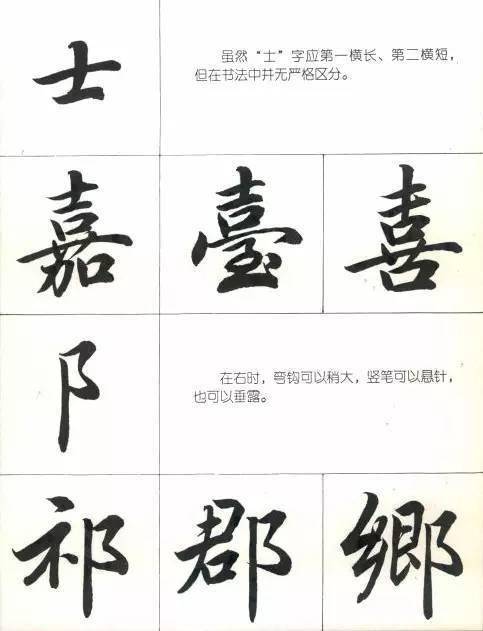 士
虽然“士”字应第一横长、第二横短，
但在书法中并无严格区分。
嘉 臺 喜
阝
在右时，弯钩可以稍大，竖笔可以悬针，
也可以垂露。
祁 郡 鄉